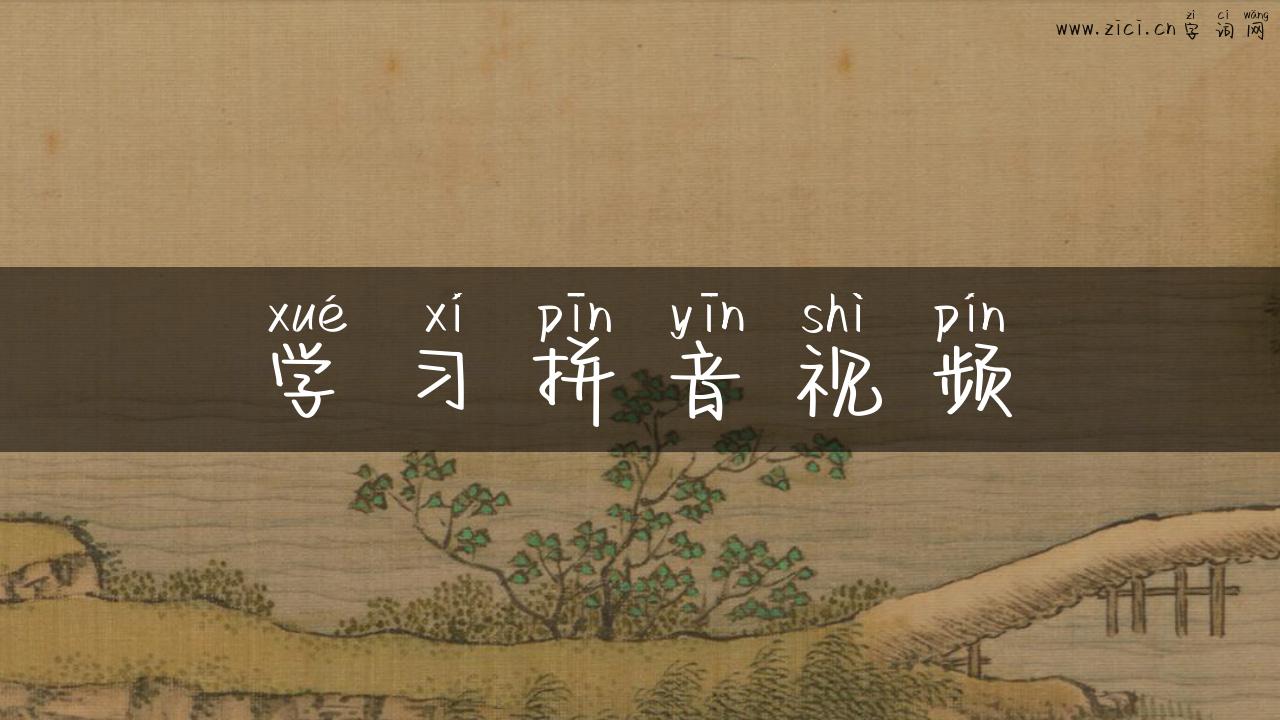 zì cí wǎng
www.zici.cn 字 词 网
xué xí pīn yīn shì pín
学 习 拼 音 视 频